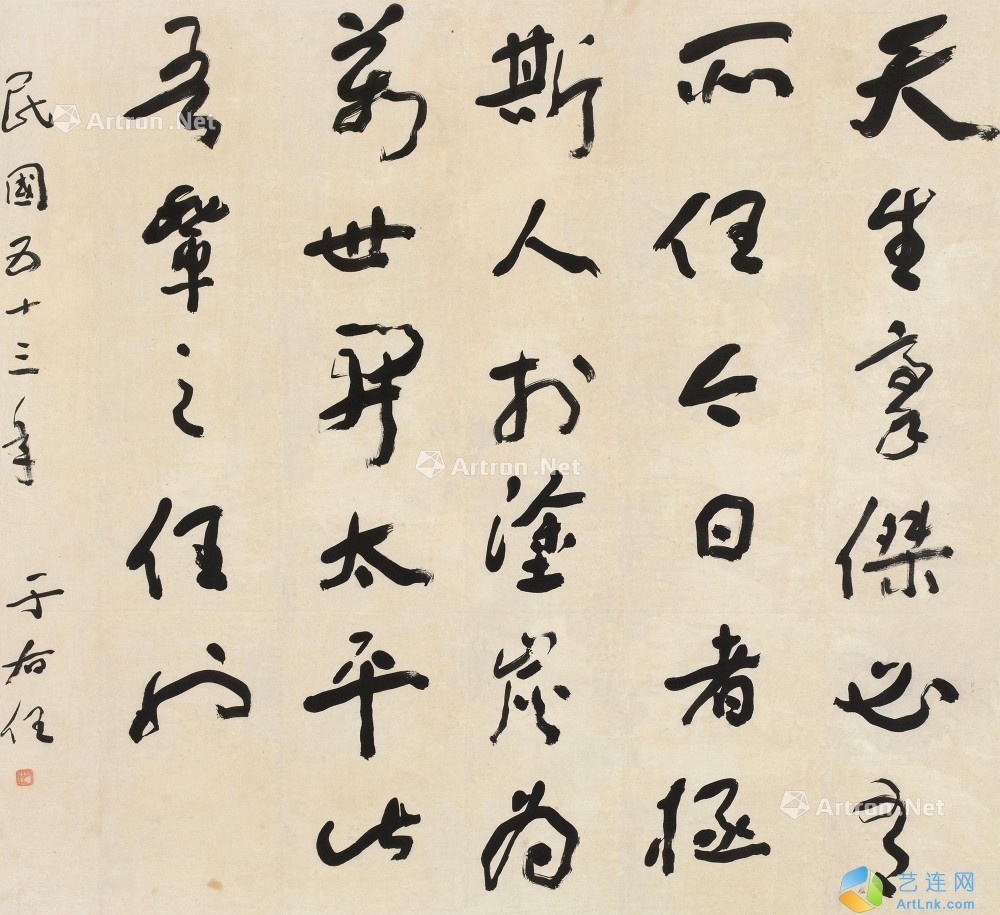 天生豪傑必有
所任今日者拯
斯人於塗炭為
萬世開太平此
吾輩之任也
民國五十三年 于右任
Artron.Net
Artron.Net
Artron.Net
艺连网
ArtLnk.com